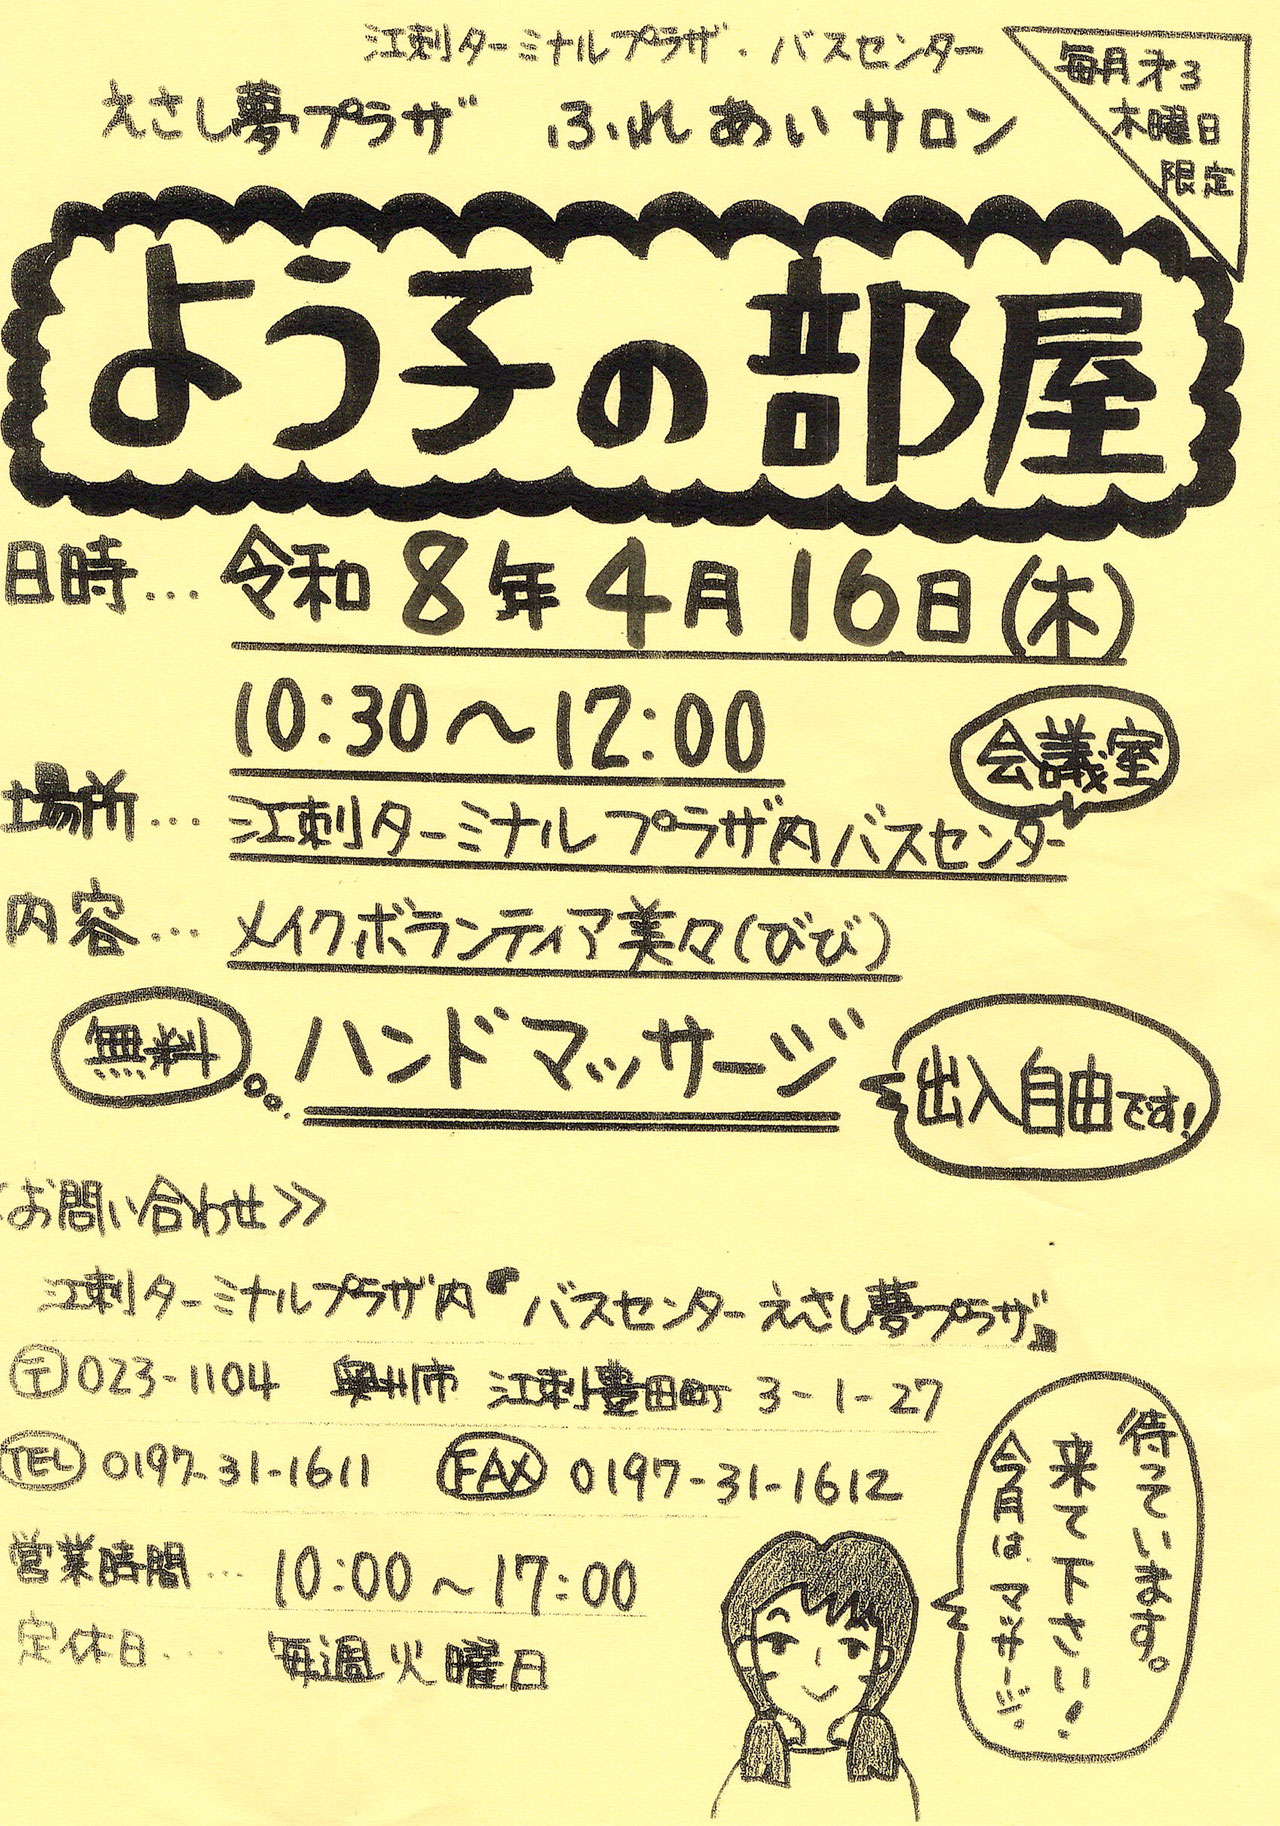 江刺ターミナルプラザ・バスセンター
えさし夢プラザ ふれあいサロン
毎月才3
木曜日
限定
よう子の部屋
日時… 令和8年4月16日(木)
10:30〜12:00
会議室
場所… 江刺ターミナルプラザ内バスセンター
内容… メイクボランティア美々(びび)
無料
ハンドマッサージ
出入自由です!
お問い合わせ≫
江刺ターミナルプラザ内 バスセンターえさし夢プラザ
〒023-1104 奥州市 江刺豊田町 3-1-27
TEL 0197-31-1611 FAX 0197-31-1612
営業時間… 10:00〜17:00
定休日… 毎週火曜日
待っています。
来て下さい!
今月は、マッサージ。